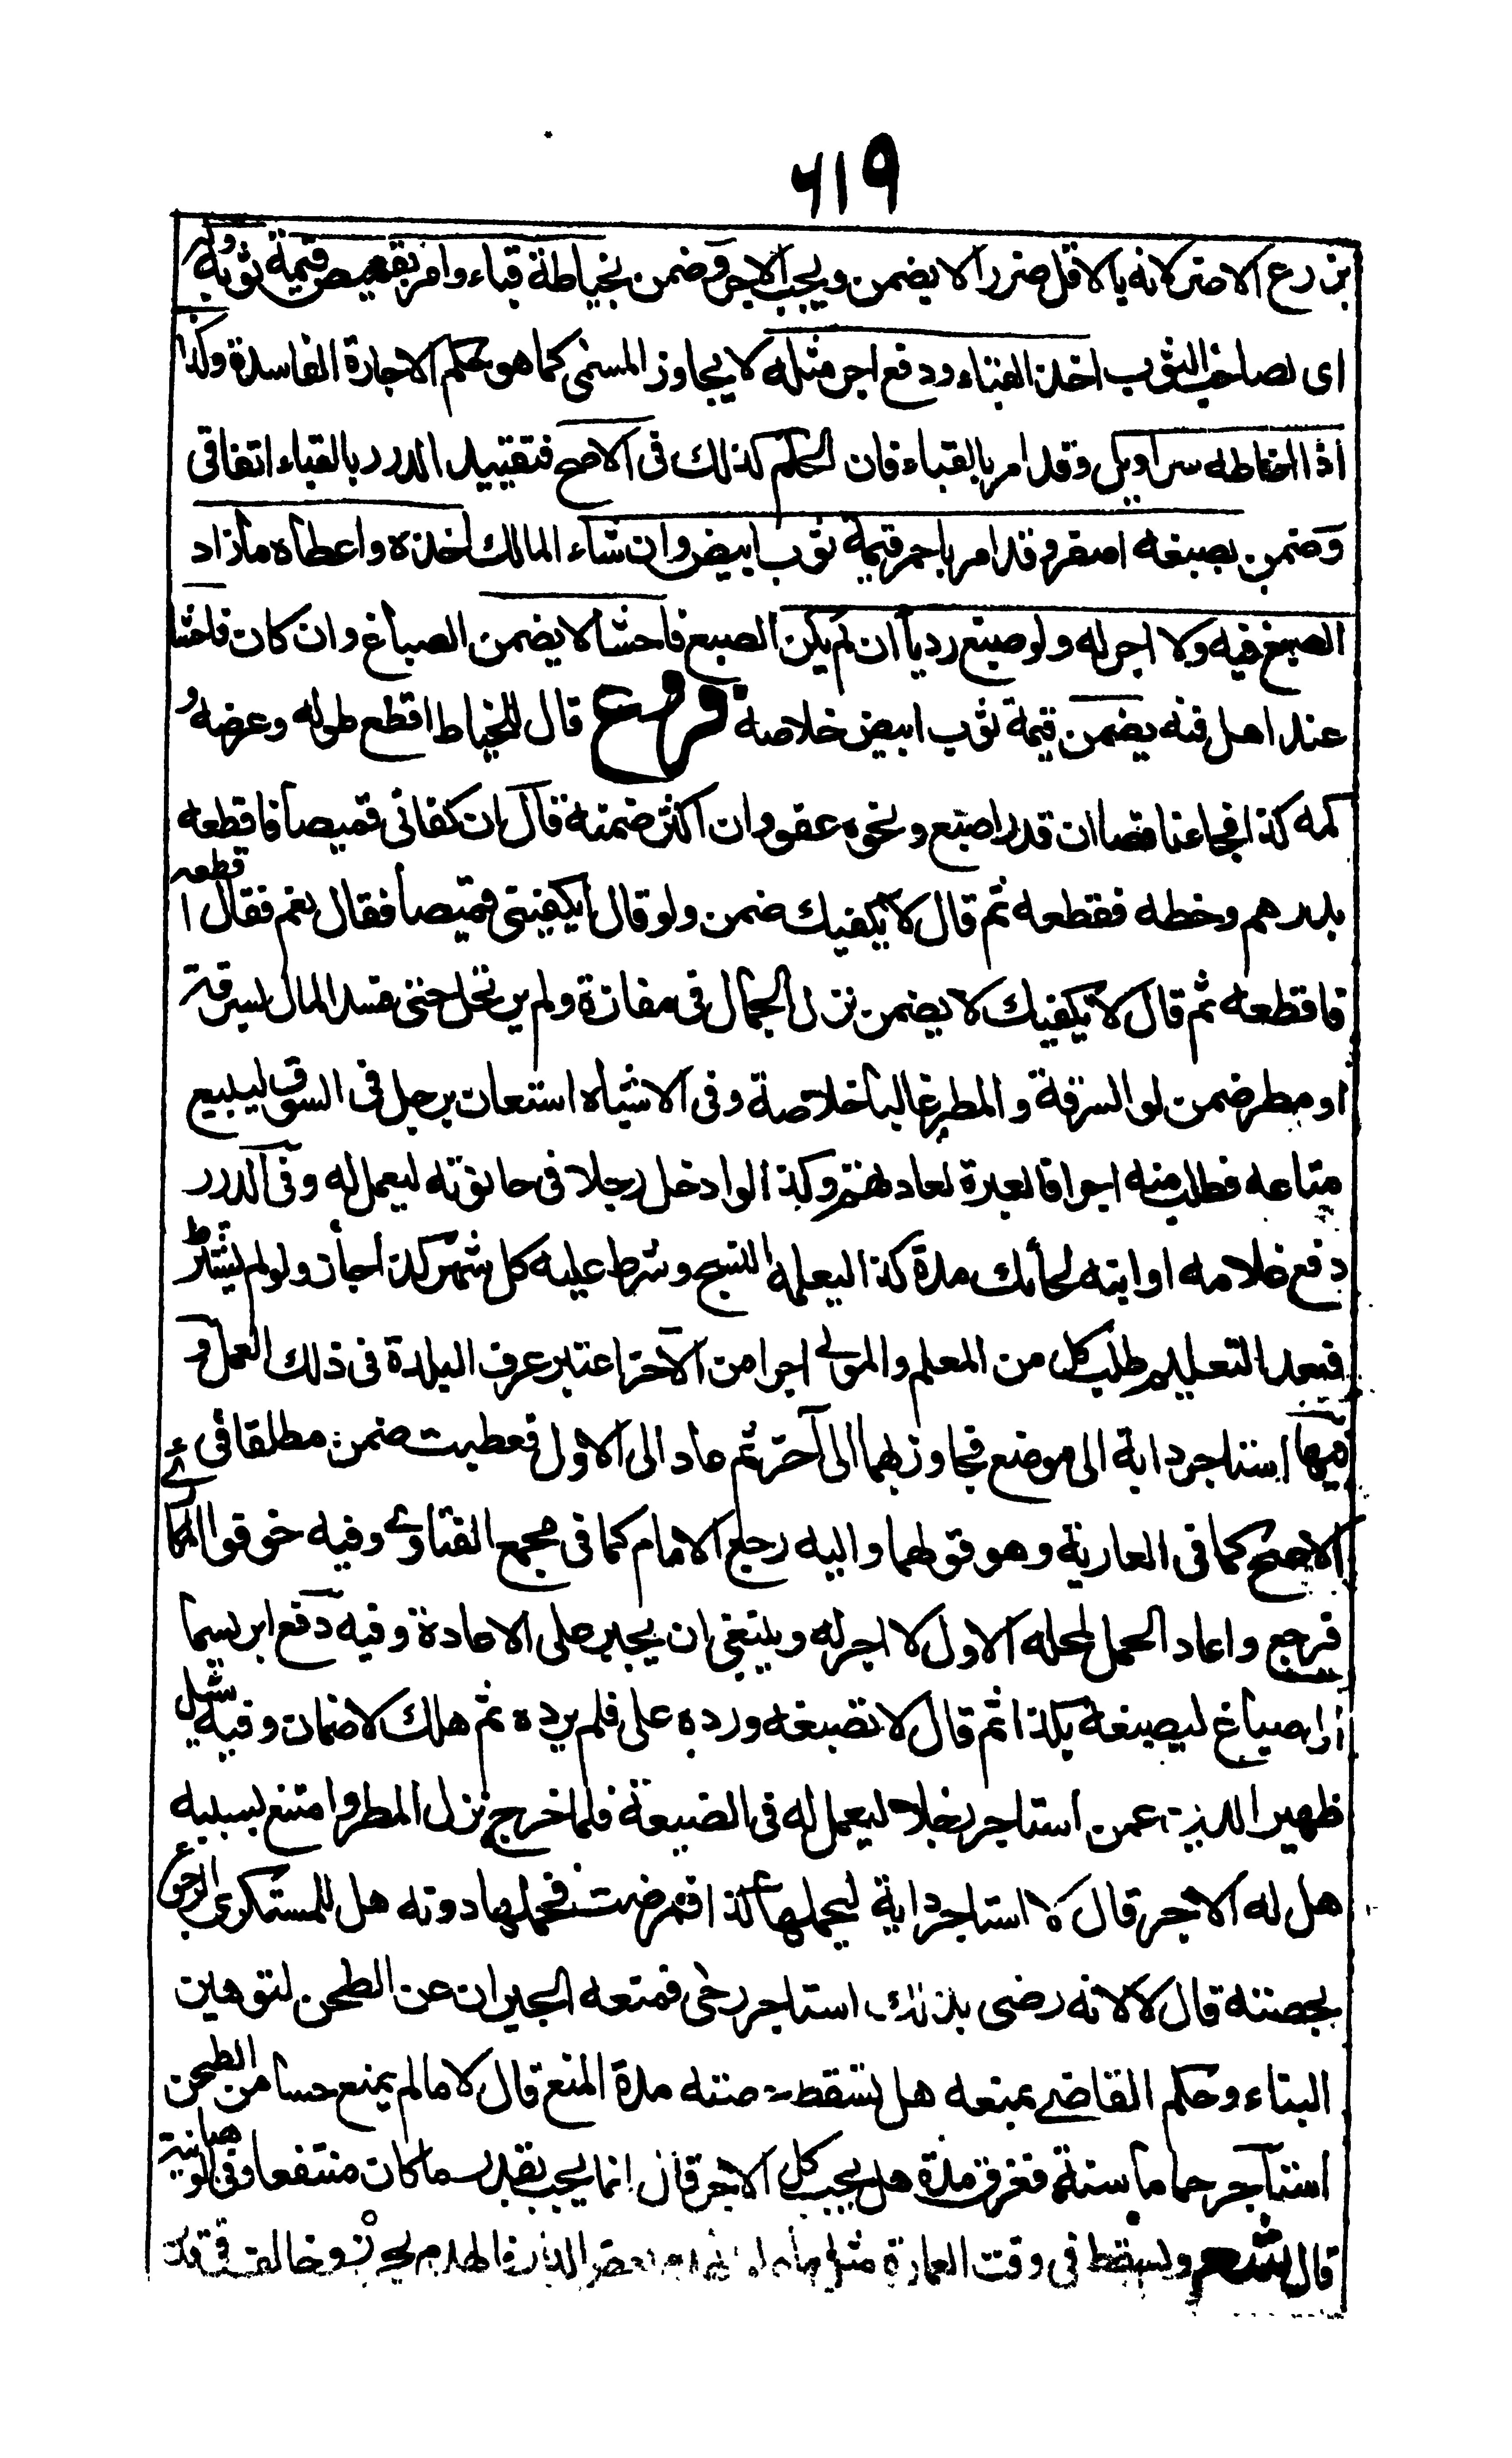 ٦١٩
بزرع الاضر لانه بالاقل ضررا لا يضمن ويجب الاجر وضمن بخياطة قباء وامر بقميص قيمة ثوبه وله
اى لصاحب الثوب اخذ القباء ودفع اجر مثله لا يجاوز المسمى كما هو حكم الاجارة الفاسدة وكذا
اذا خاطه سراويل وقد امر بالقباء فان الحكم كذلك فى الاصح فتقييد الدرر بالقباء اتفاقى
وضمن بصبغه اصفر وقد امر باحمر قيمة ثوب ابيض وان شاء المالك اخذه واعطاه مازاد
الصبغ فيه ولا اجر له ولو صبغ رديأ ان لم يكن الصبغ فاحشا لا يضمن الصباغ وان كان فاحشا
عند اهل فنه يضمن قيمة ثوب ابيض خلاصه فروع قال للخياط اقطع طوله وعرضه و
كمه كذا فجاء ناقصا ان قدر اصبع ونحوه عفو وان اكثر ضمنه قال ان كفانى قميصا فاقطعه
بدرهم وخطه فقطعه ثم قال لا يكفيك ضمن ولو قال ايكفينى قميصا فقال نعم فقال اقطعه
فاقطعه ثم قال لا يكفيك لا يضمن نزل الجمال فى مفازة ولم يرتحل حتى فسد المال بسرقة
او مطر ضمن لو السرقة والمطر غالبا خلاصة وفى الاشباه استعان برجل فى السوق ليبيع
متاعه فطلب منه اجرا فالعبرة لعادتهم وكذا لو ادخل رجلا فى حانوته ليعمل له وفى الدرر
دفع غلامه او ابنه لحائك مدة كذا ليعلمه النسج وشرط عليه كل شهر كذا جاز ولو لم يشترط
فبعد التعليم طلب كل من المعلم والمولى اجرا من الآخر اعتبر عرف البلدة فى ذلك العمل و
فيها استاجر دابة الى موضع فجاوز بها الى آخر ثم عاد الى الاول فعطبت ضمن مطلقا فى
الاصح كما فى العارية وهو قولهما واليه رجع الامام كما فى مجمع الفتاوى وفيه خوفوا المكارى
فرجع واعاد الحمل لمحله الاول لا اجر له وينبغى ان يجبر على الاعادة وفيه دفع ابريسما
الى صباغ ليصبغه بكذا ثم قال لا تصبغه ورده على فلم يرده ثم هلك لا ضمان وفيه سئل
ظهير الدين عمن استاجر رجلا ليعمل له فى الضيعة فلما خرج نزل المطر وامتنع بسببه
هل له الاجر قال لا استاجر دابة ليحملها كذا فمرضت فحملها دونه هل للمستكرى الرجوع
بحصته قال لا لانه رضى بذلك استاجر رحى فمنعه الجيران عن الطحن لتوهين
البناء وحكم القاضى بمنعه هل تسقط حصته مدة المنع قال لا مالم يمنع حسا من الطحن
استاجر حماما سنة فغرق مدة هل يجب كل الاجر قال انما يجب بقدر ما كان منتفعا وفى الوهبانية
قال شعر ويسقط فى وقت العمارة مثل ما